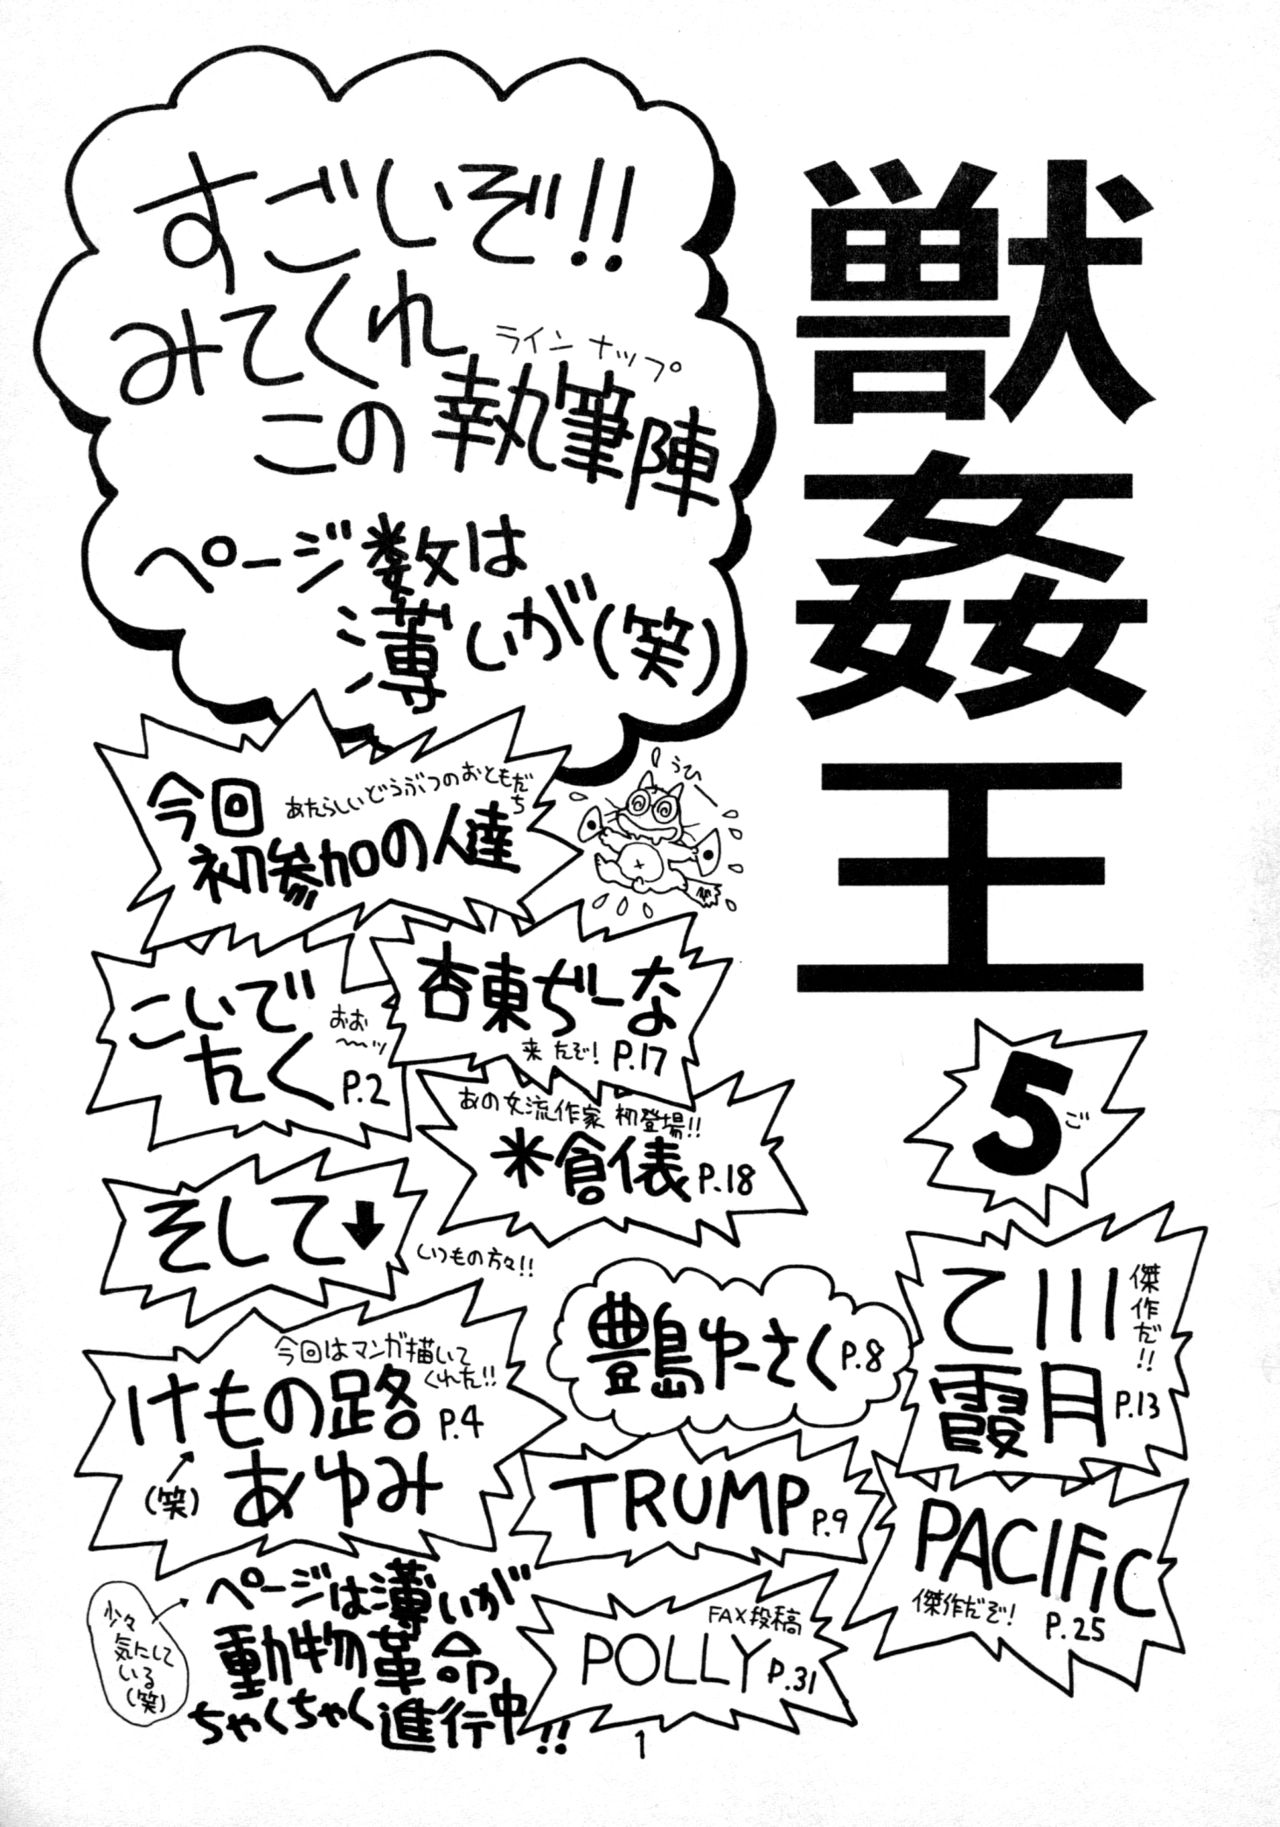 獣姦王
5
ご
すごいぞ!!
みてくれ
この執筆陣
ラインナップ
ページ数は
薄いが(笑)
うひー
今回
初参加の人達
あたらしいどうぶつのおともだち
こいで
たく
おお〜ッ
P.2
杏東ぢーな
来たぞ! P.17
あの女流作家 初登場!!
米倉俵 P.18
そして↓
いつもの方々!!
今回はマンガ描いて
くれた!!
けもの路 P.4
あゆみ
(笑)
豊島ゆーさく P.8
乙川
霞月 P.13
傑作だ!!
TRUMP P.9
PACIFIC
傑作だぞ! P.25
FAX投稿
POLLY P.31
ページは薄いが
動物革命
ちゃくちゃく進行中!!
少々
気にして
いる
(笑)
1